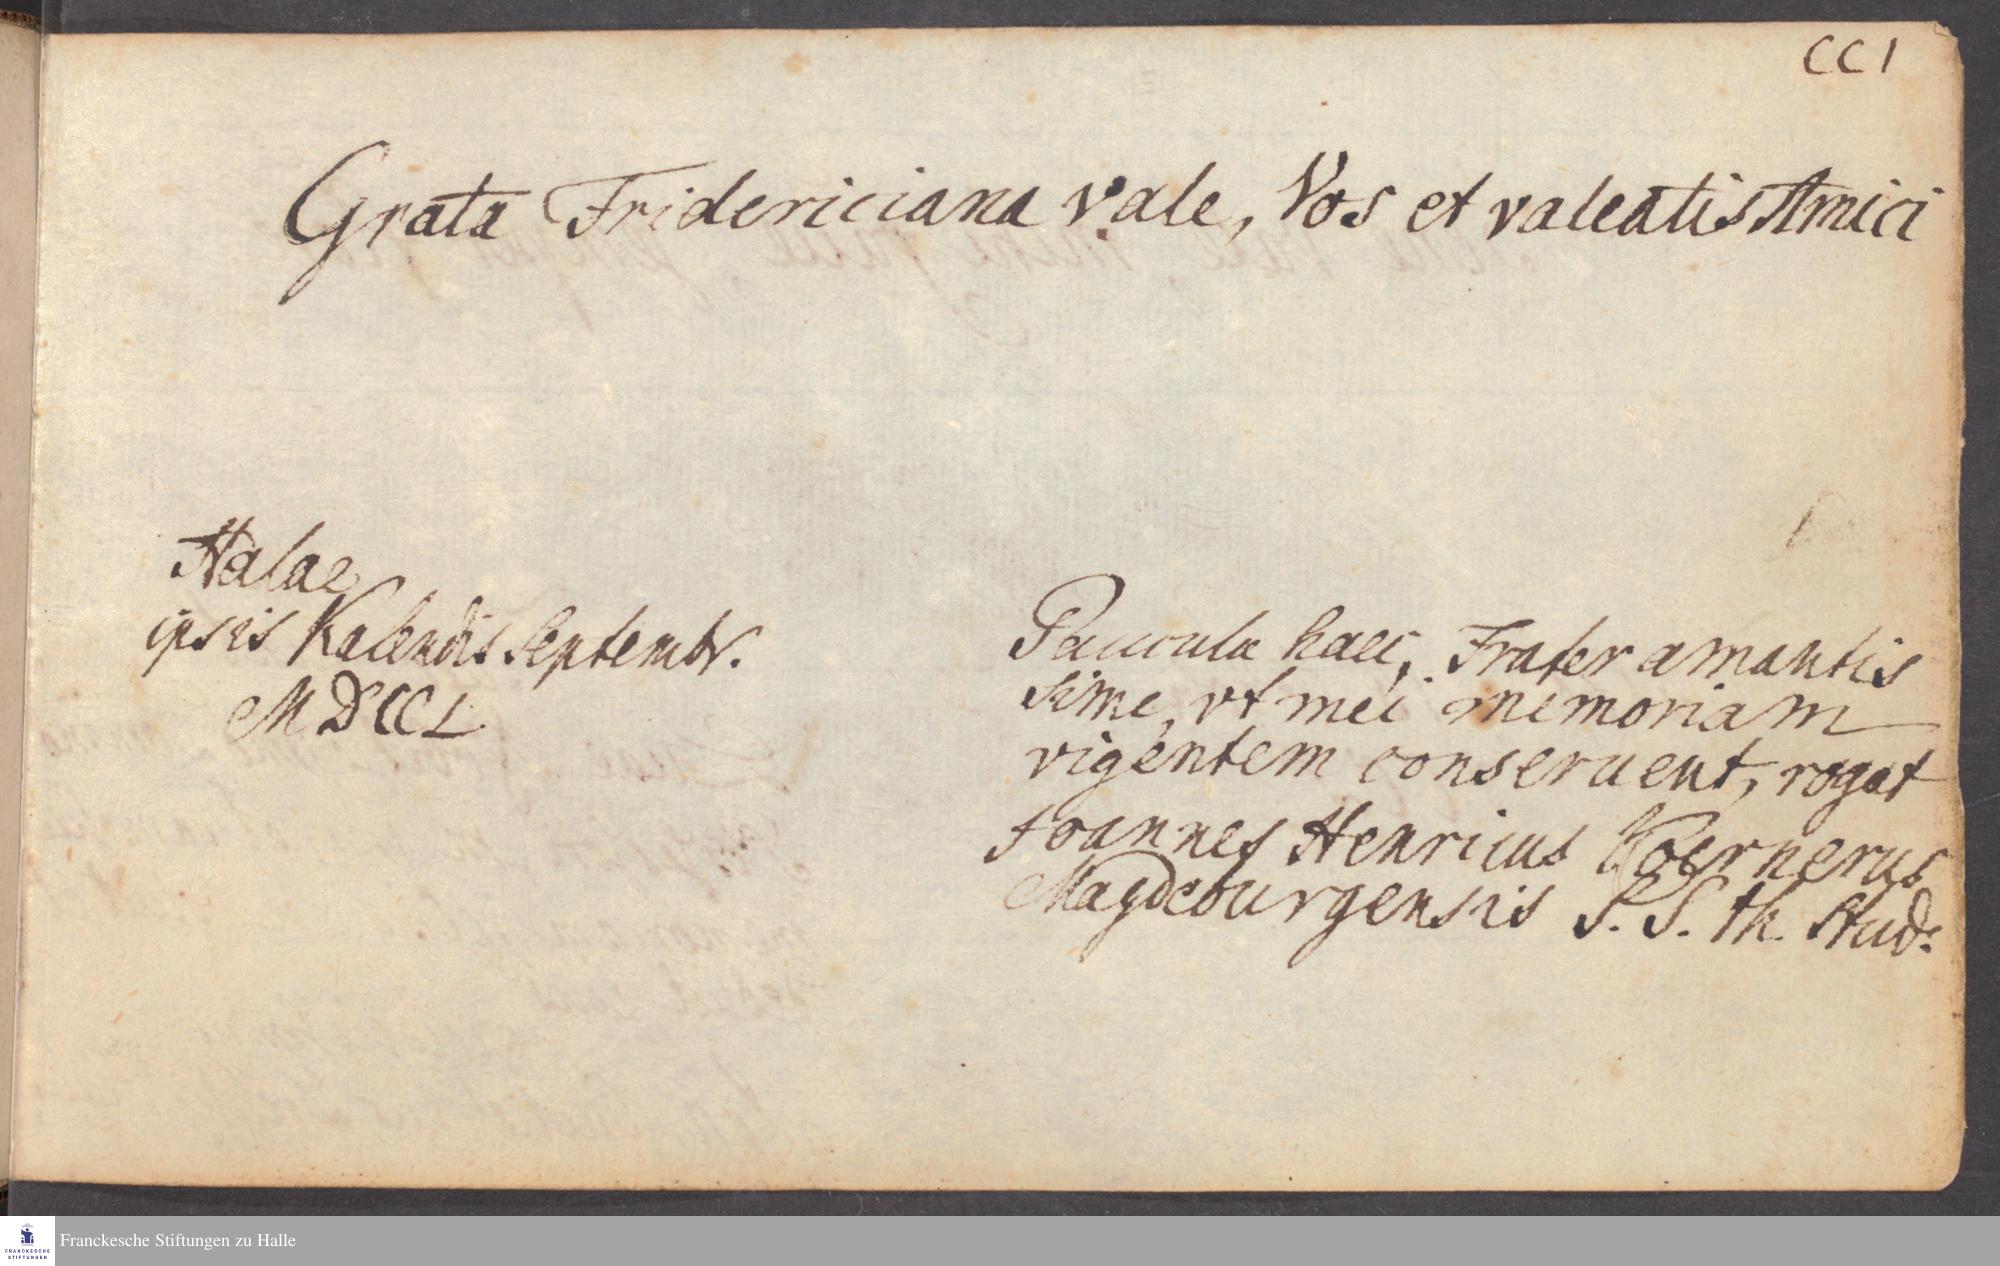 CCI
Grata Fridericiana vale, Vos et valeatis Amici
Halae
ipsis Kalendis Septembr.
MDCCL
Paucula haec, Frater amantis
sime, vt mei memoriam
vigentem conseruent, rogat
Joannes Henricus Koernerus
Magdeburgensis S. S. th. Stud.
Franckesche Stiftungen zu Halle
FRANCKESCHE
STIFTUNGEN